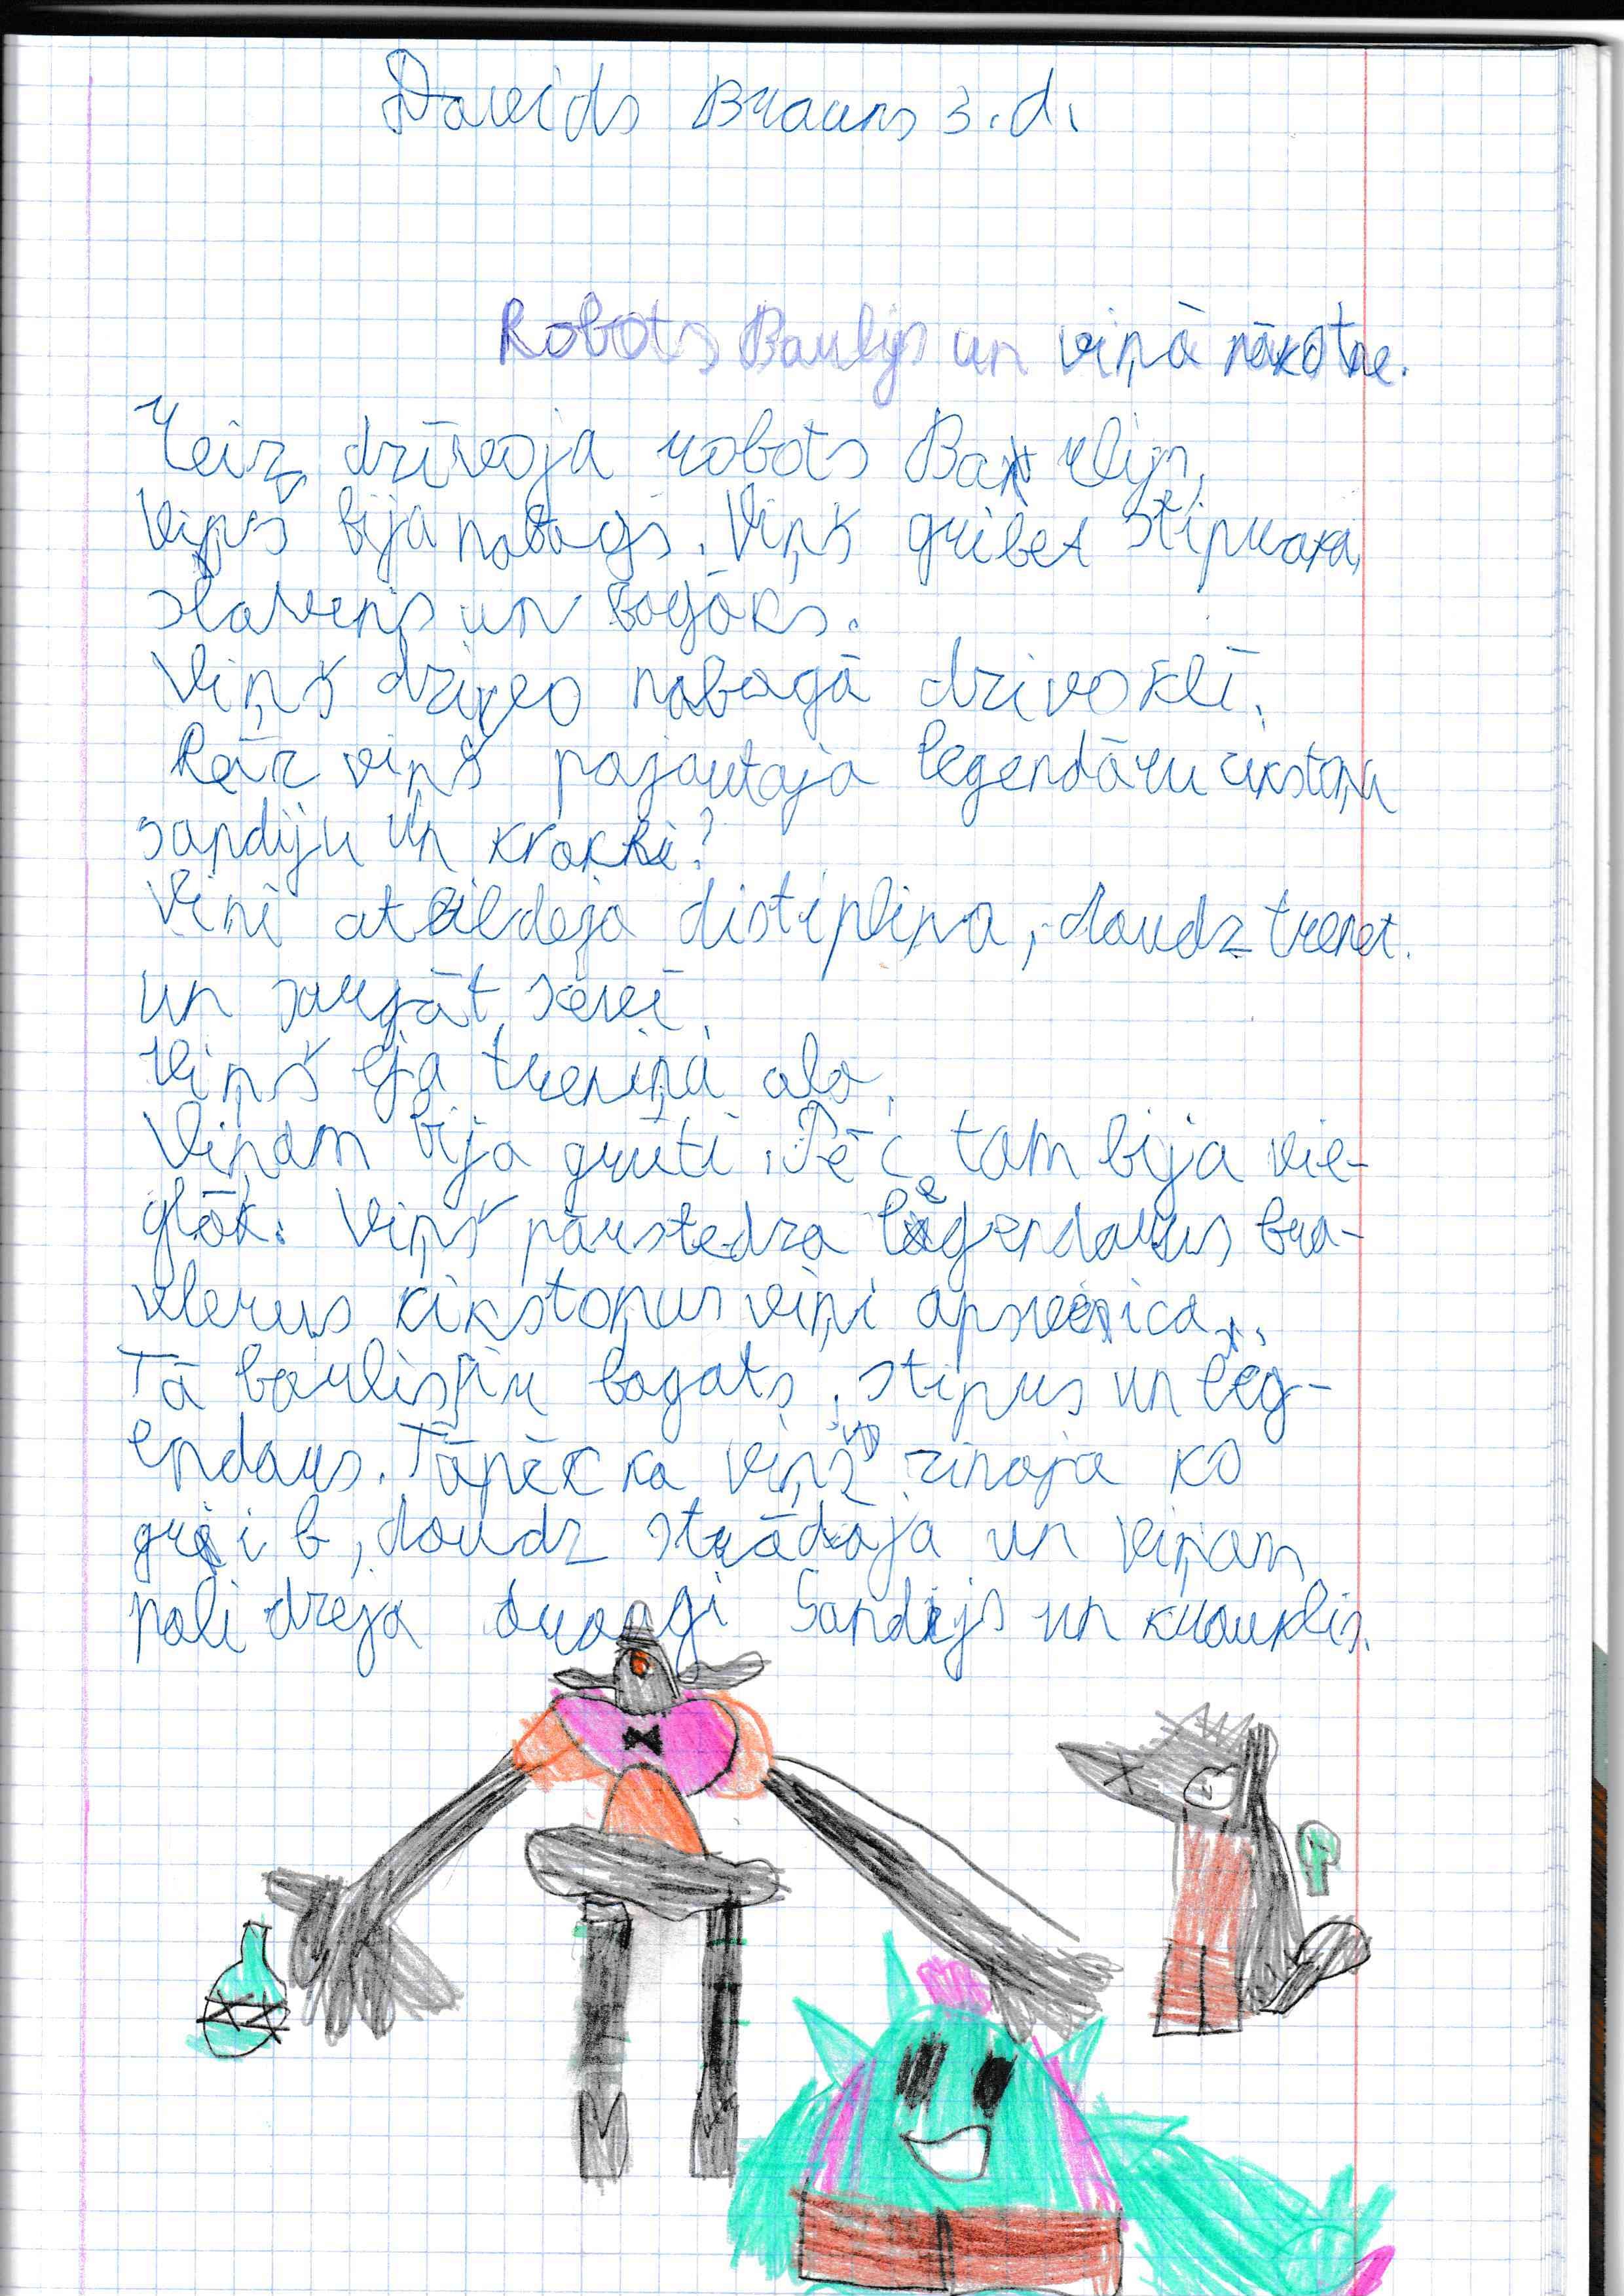 Davids Brauns 3.d.
Robots Baulijs un viņa nākotne.
Reiz dzīvoja robots Baulijs,
Viņš bija nabags. Viņš gribēt stipraka,
slavens un bogāks.
Viņš dzīvo nabagā dzivoklī.
Reiz viņš pajautaja legendāru cikstoņu
sandiju un krakki?
Vini atbildeja distiplina, daudz trenet.
un sargāt sevi.
Viņš gja treniņa alo.
Viņam bija grūti. Pēc tam bija vie-
glāk. Viņš pārstedza legendarus bra-
vlerus cikstoņus viņi apsveica.
Tā baulis bogats, stiprs un leg-
endars. Tāpēc ka viņš zinaja ko
grib, daudz strādaja un viņam
palidzeja draugi Sandijs un krauklis.